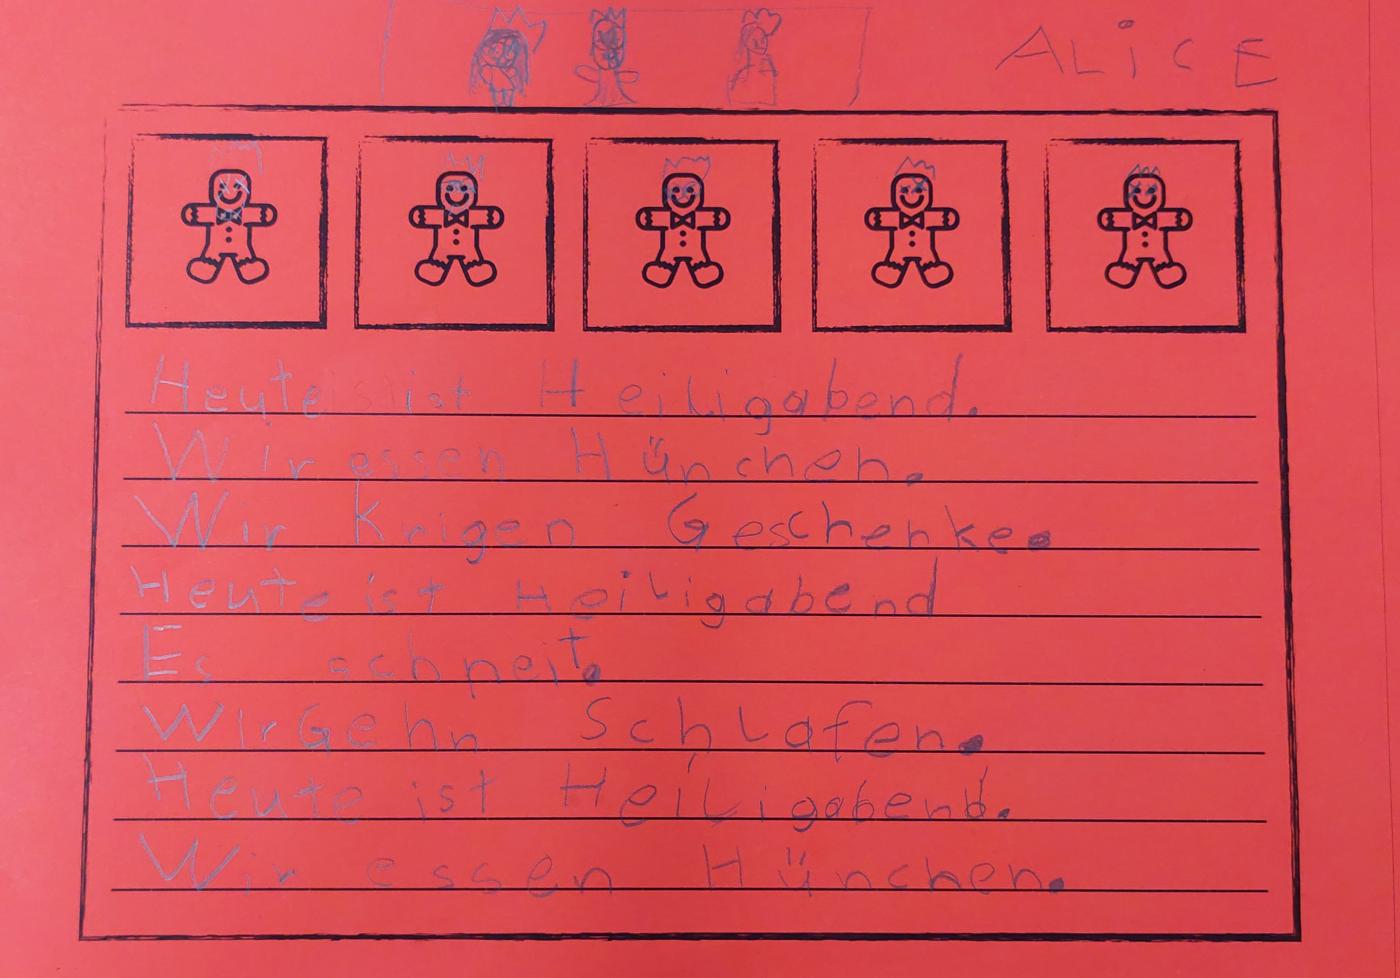 ALiCE
Heute ist Heiligabend.
Wir essen Hünchen.
Wir Krigen Geschenke.
Heute ist Heiligabend
Es schneit.
Wir Gehn Schlafen.
Heute ist Heiligabend.
Wir essen Hünchen.